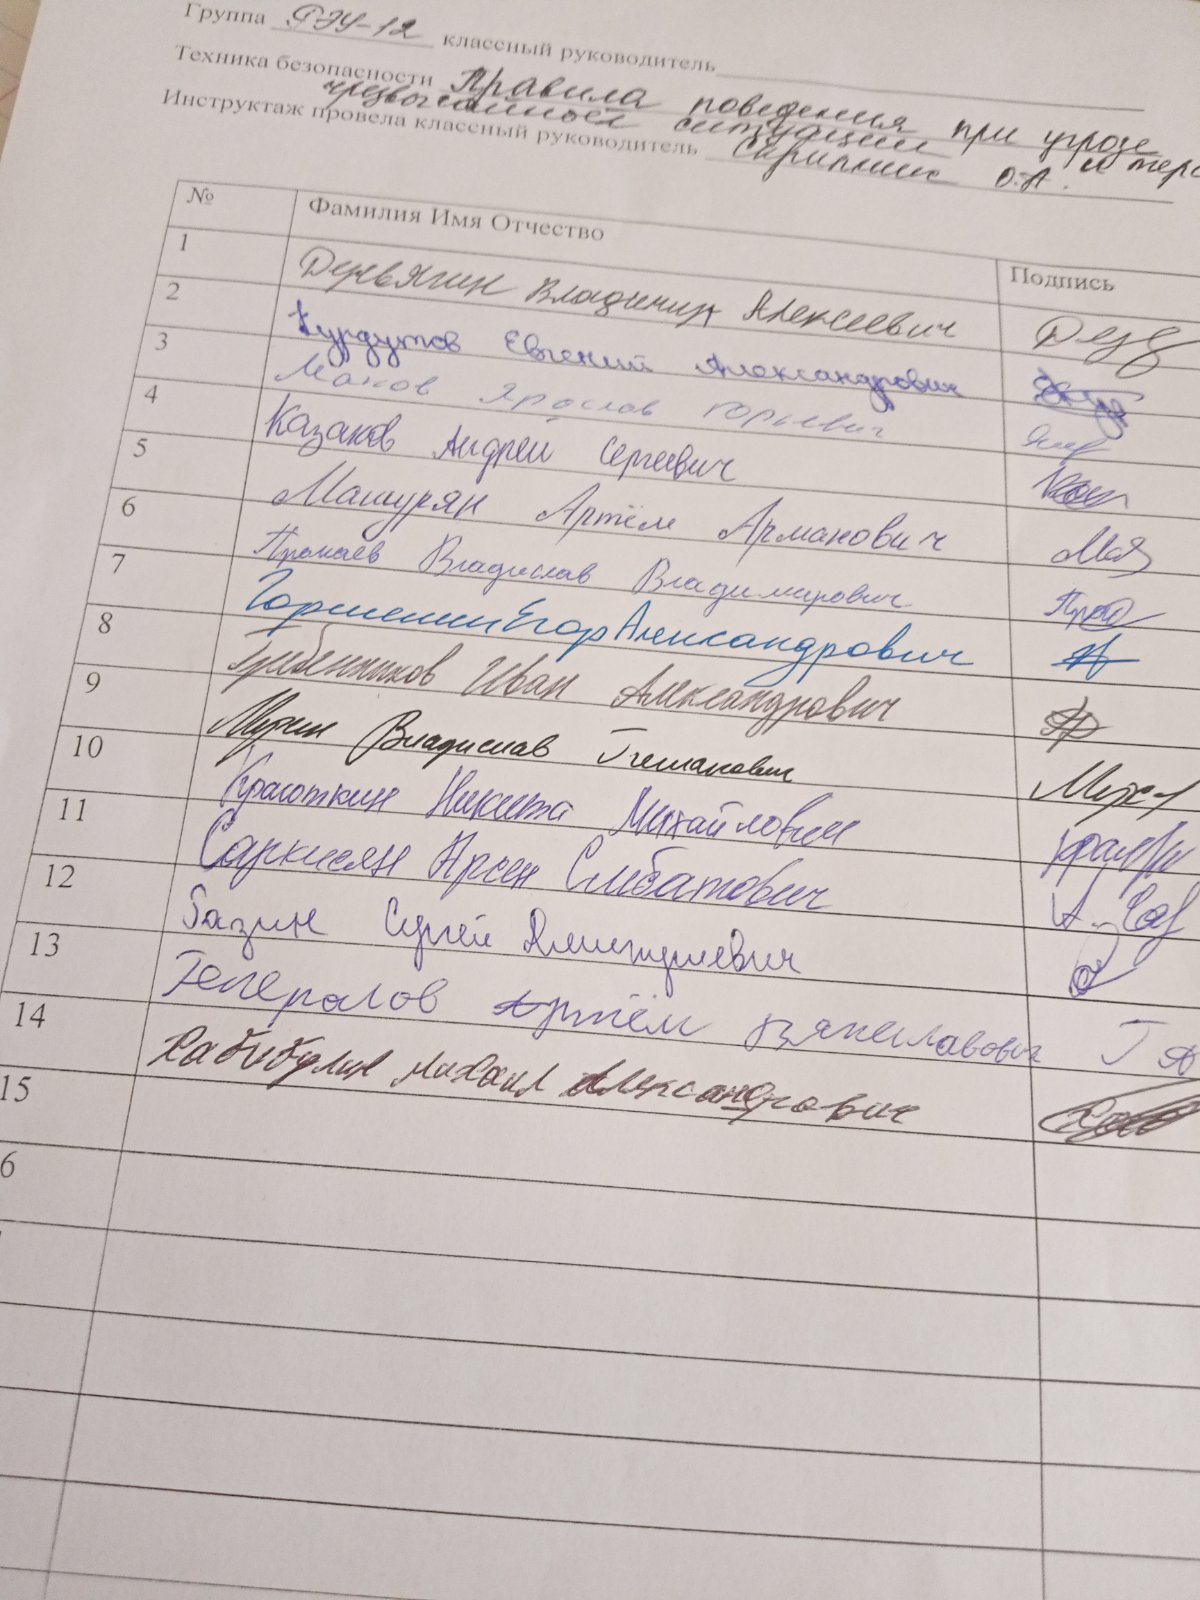 Группа РЭУ-12 классный руководитель
Техника безопасности Правила поведения при угрозе
чрезвычайной ситуации и терс
Инструктаж провела классный руководитель Скрипник О.А.
№ Фамилия Имя Отчество Подпись
1 Деревягин Владимир Алексеевич Дер
2 Курдутов Евгений Александрович
3 Маков Ярослав Юрьевич
4 Казаков Андрей Сергеевич
5 Машурян Артём Арманович
6 Прокаев Владислав Владимирович
7 Горшенин Егор Александрович
8 Гребенников Иван Александрович
9 Мухин Владислав
10 Краюткин Никита Михайлович
11 Саркисян Арсен Смбатович
12 Базин Сергей
13 Генералов Артём ГА
14 Хабибулин Михаил Александрович
15
6